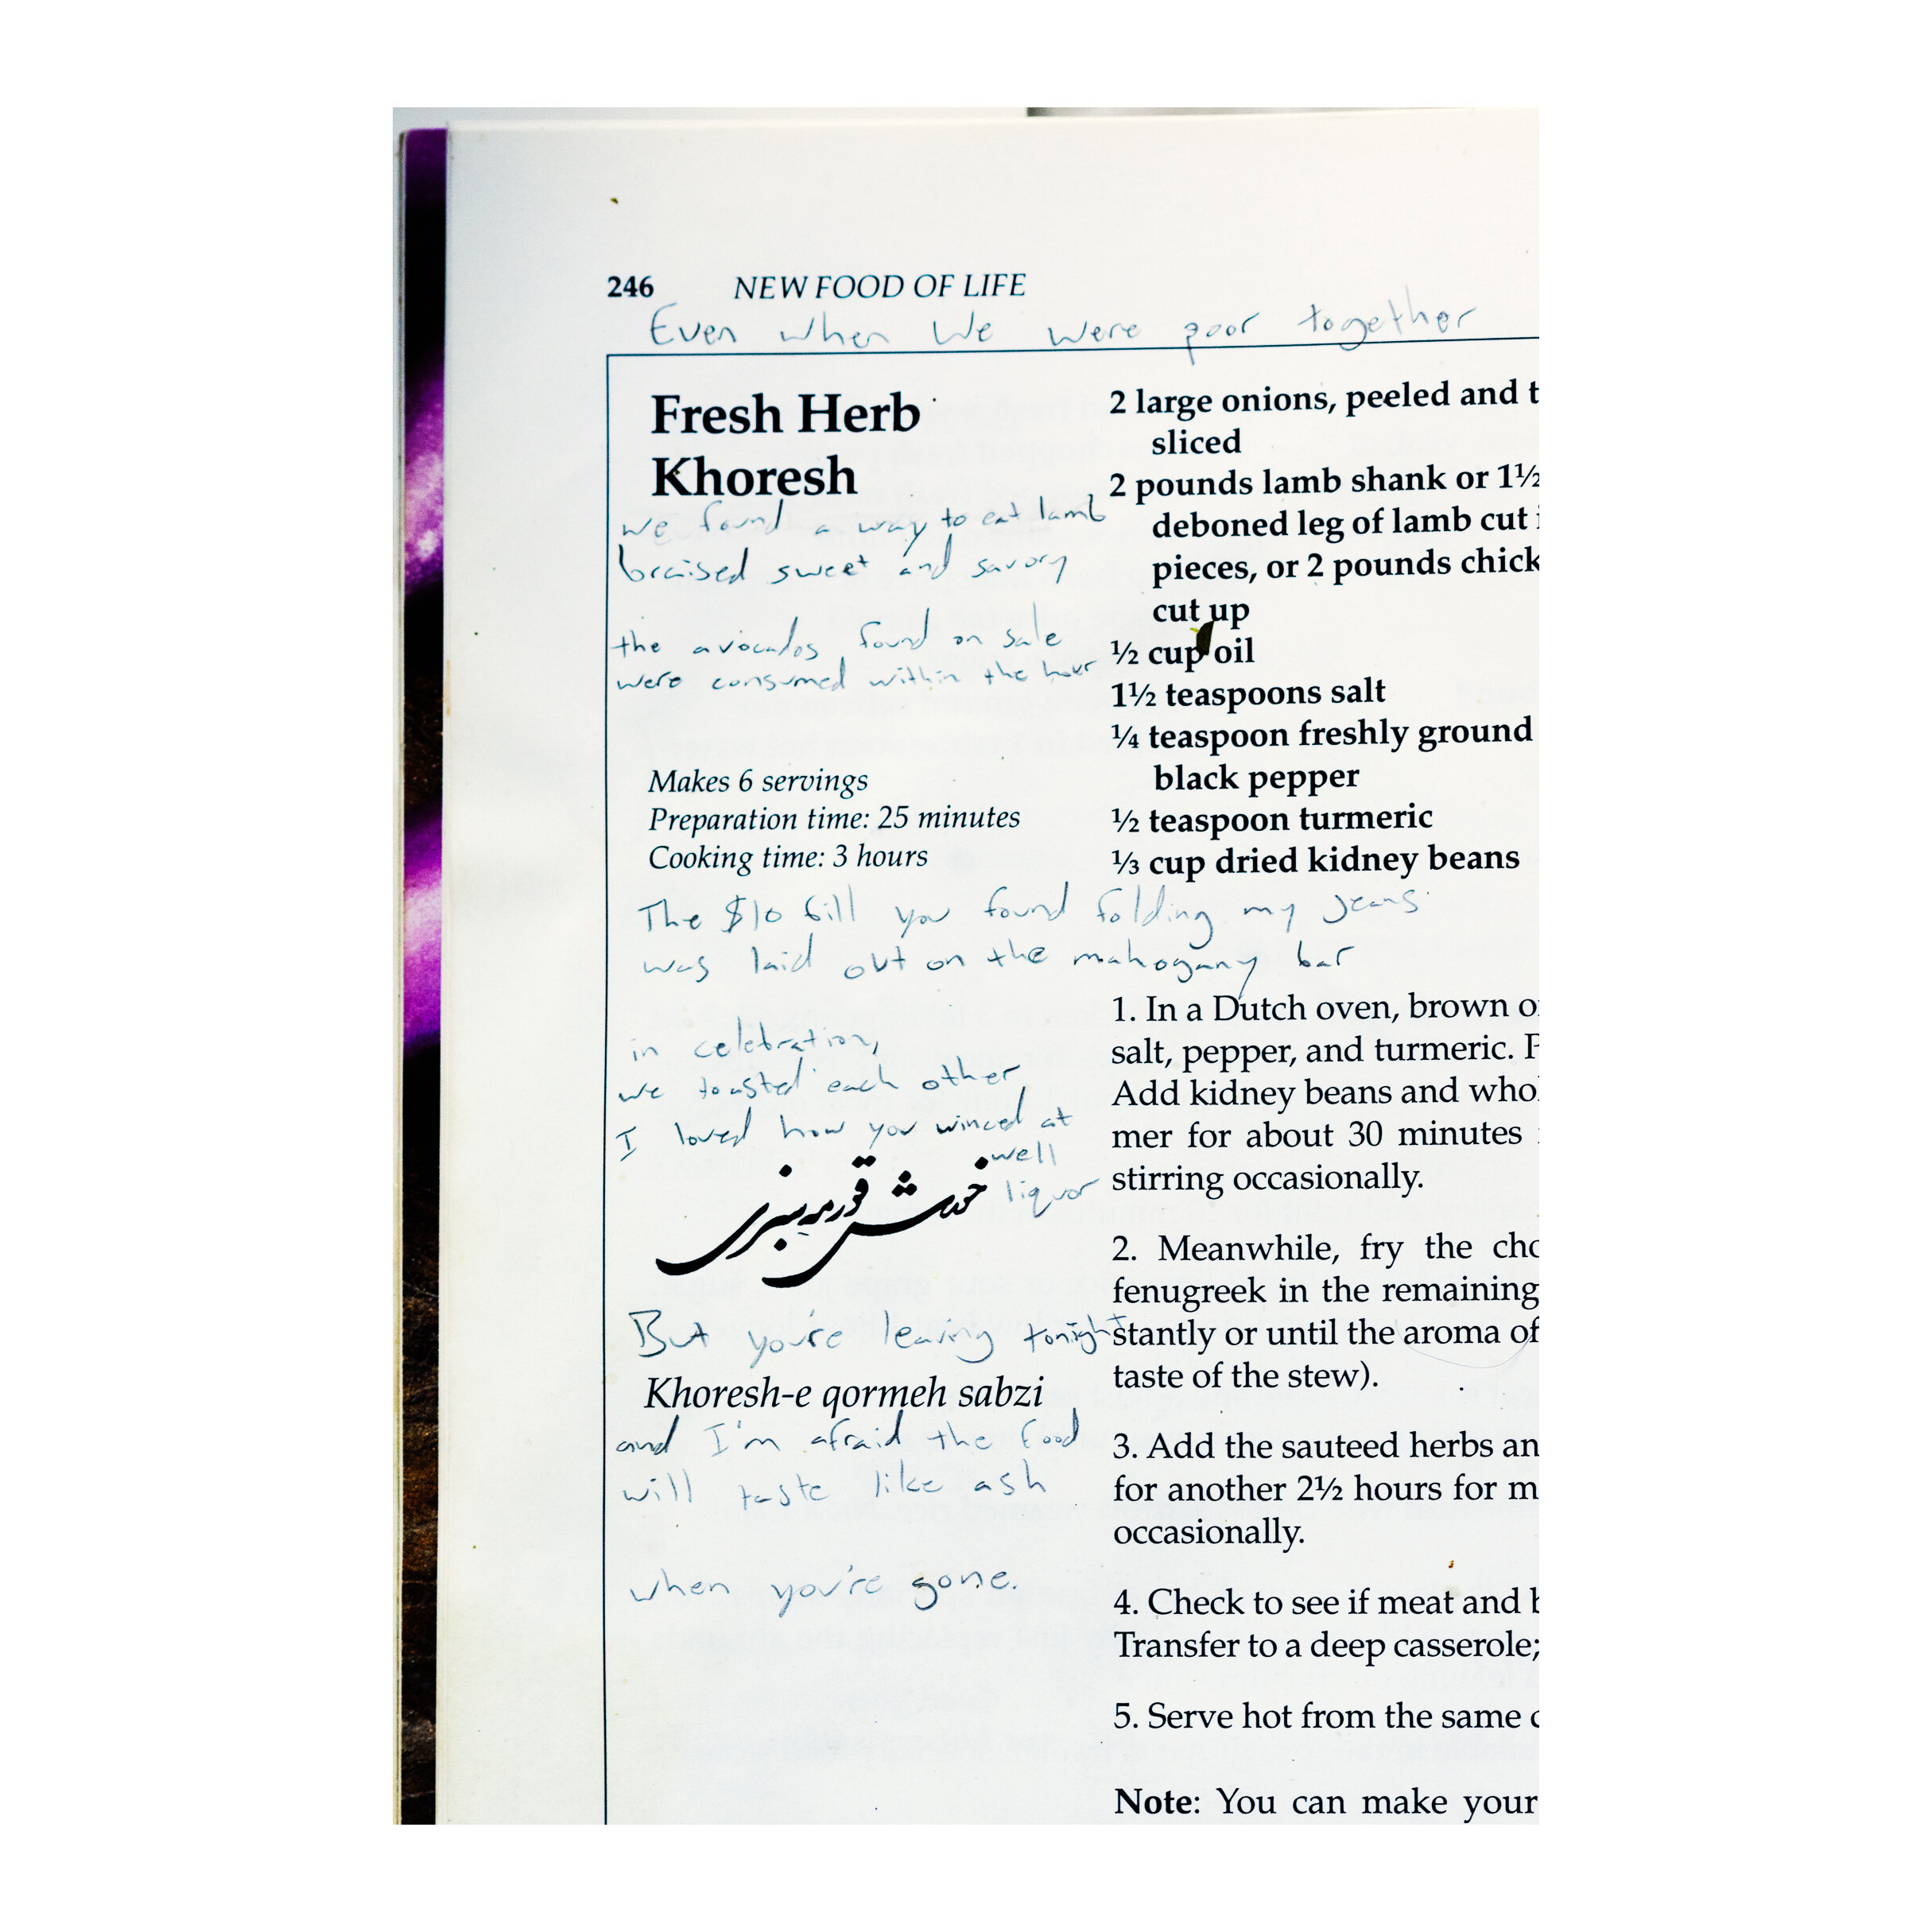 246 NEW FOOD OF LIFE
Even when We were poor together
Fresh Herb
Khoresh
we found a way to eat lamb
braised sweet and savory
the avocados found on sale
were consumed within the hour
Makes 6 servings
Preparation time: 25 minutes
Cooking time: 3 hours
The $10 bill you found folding my jeans
was laid out on the mahogany bar
in celebration,
we toasted each other
I loved how you winced at
well
liquor
خورش قورمه سبزی
But you're leaving tonight
Khoresh-e qormeh sabzi
and I'm afraid the food
will taste like ash
when you're gone.
2 large onions, peeled and t
sliced
2 pounds lamb shank or 1½
deboned leg of lamb cut i
pieces, or 2 pounds chick
cut up
½ cup oil
1½ teaspoons salt
¼ teaspoon freshly ground
black pepper
½ teaspoon turmeric
⅓ cup dried kidney beans
1. In a Dutch oven, brown o
salt, pepper, and turmeric. P
Add kidney beans and whol
mer for about 30 minutes
stirring occasionally.
2. Meanwhile, fry the cho
fenugreek in the remaining
stantly or until the aroma of
taste of the stew).
3. Add the sauteed herbs an
for another 2½ hours for m
occasionally.
4. Check to see if meat and b
Transfer to a deep casserole;
5. Serve hot from the same c
Note: You can make your